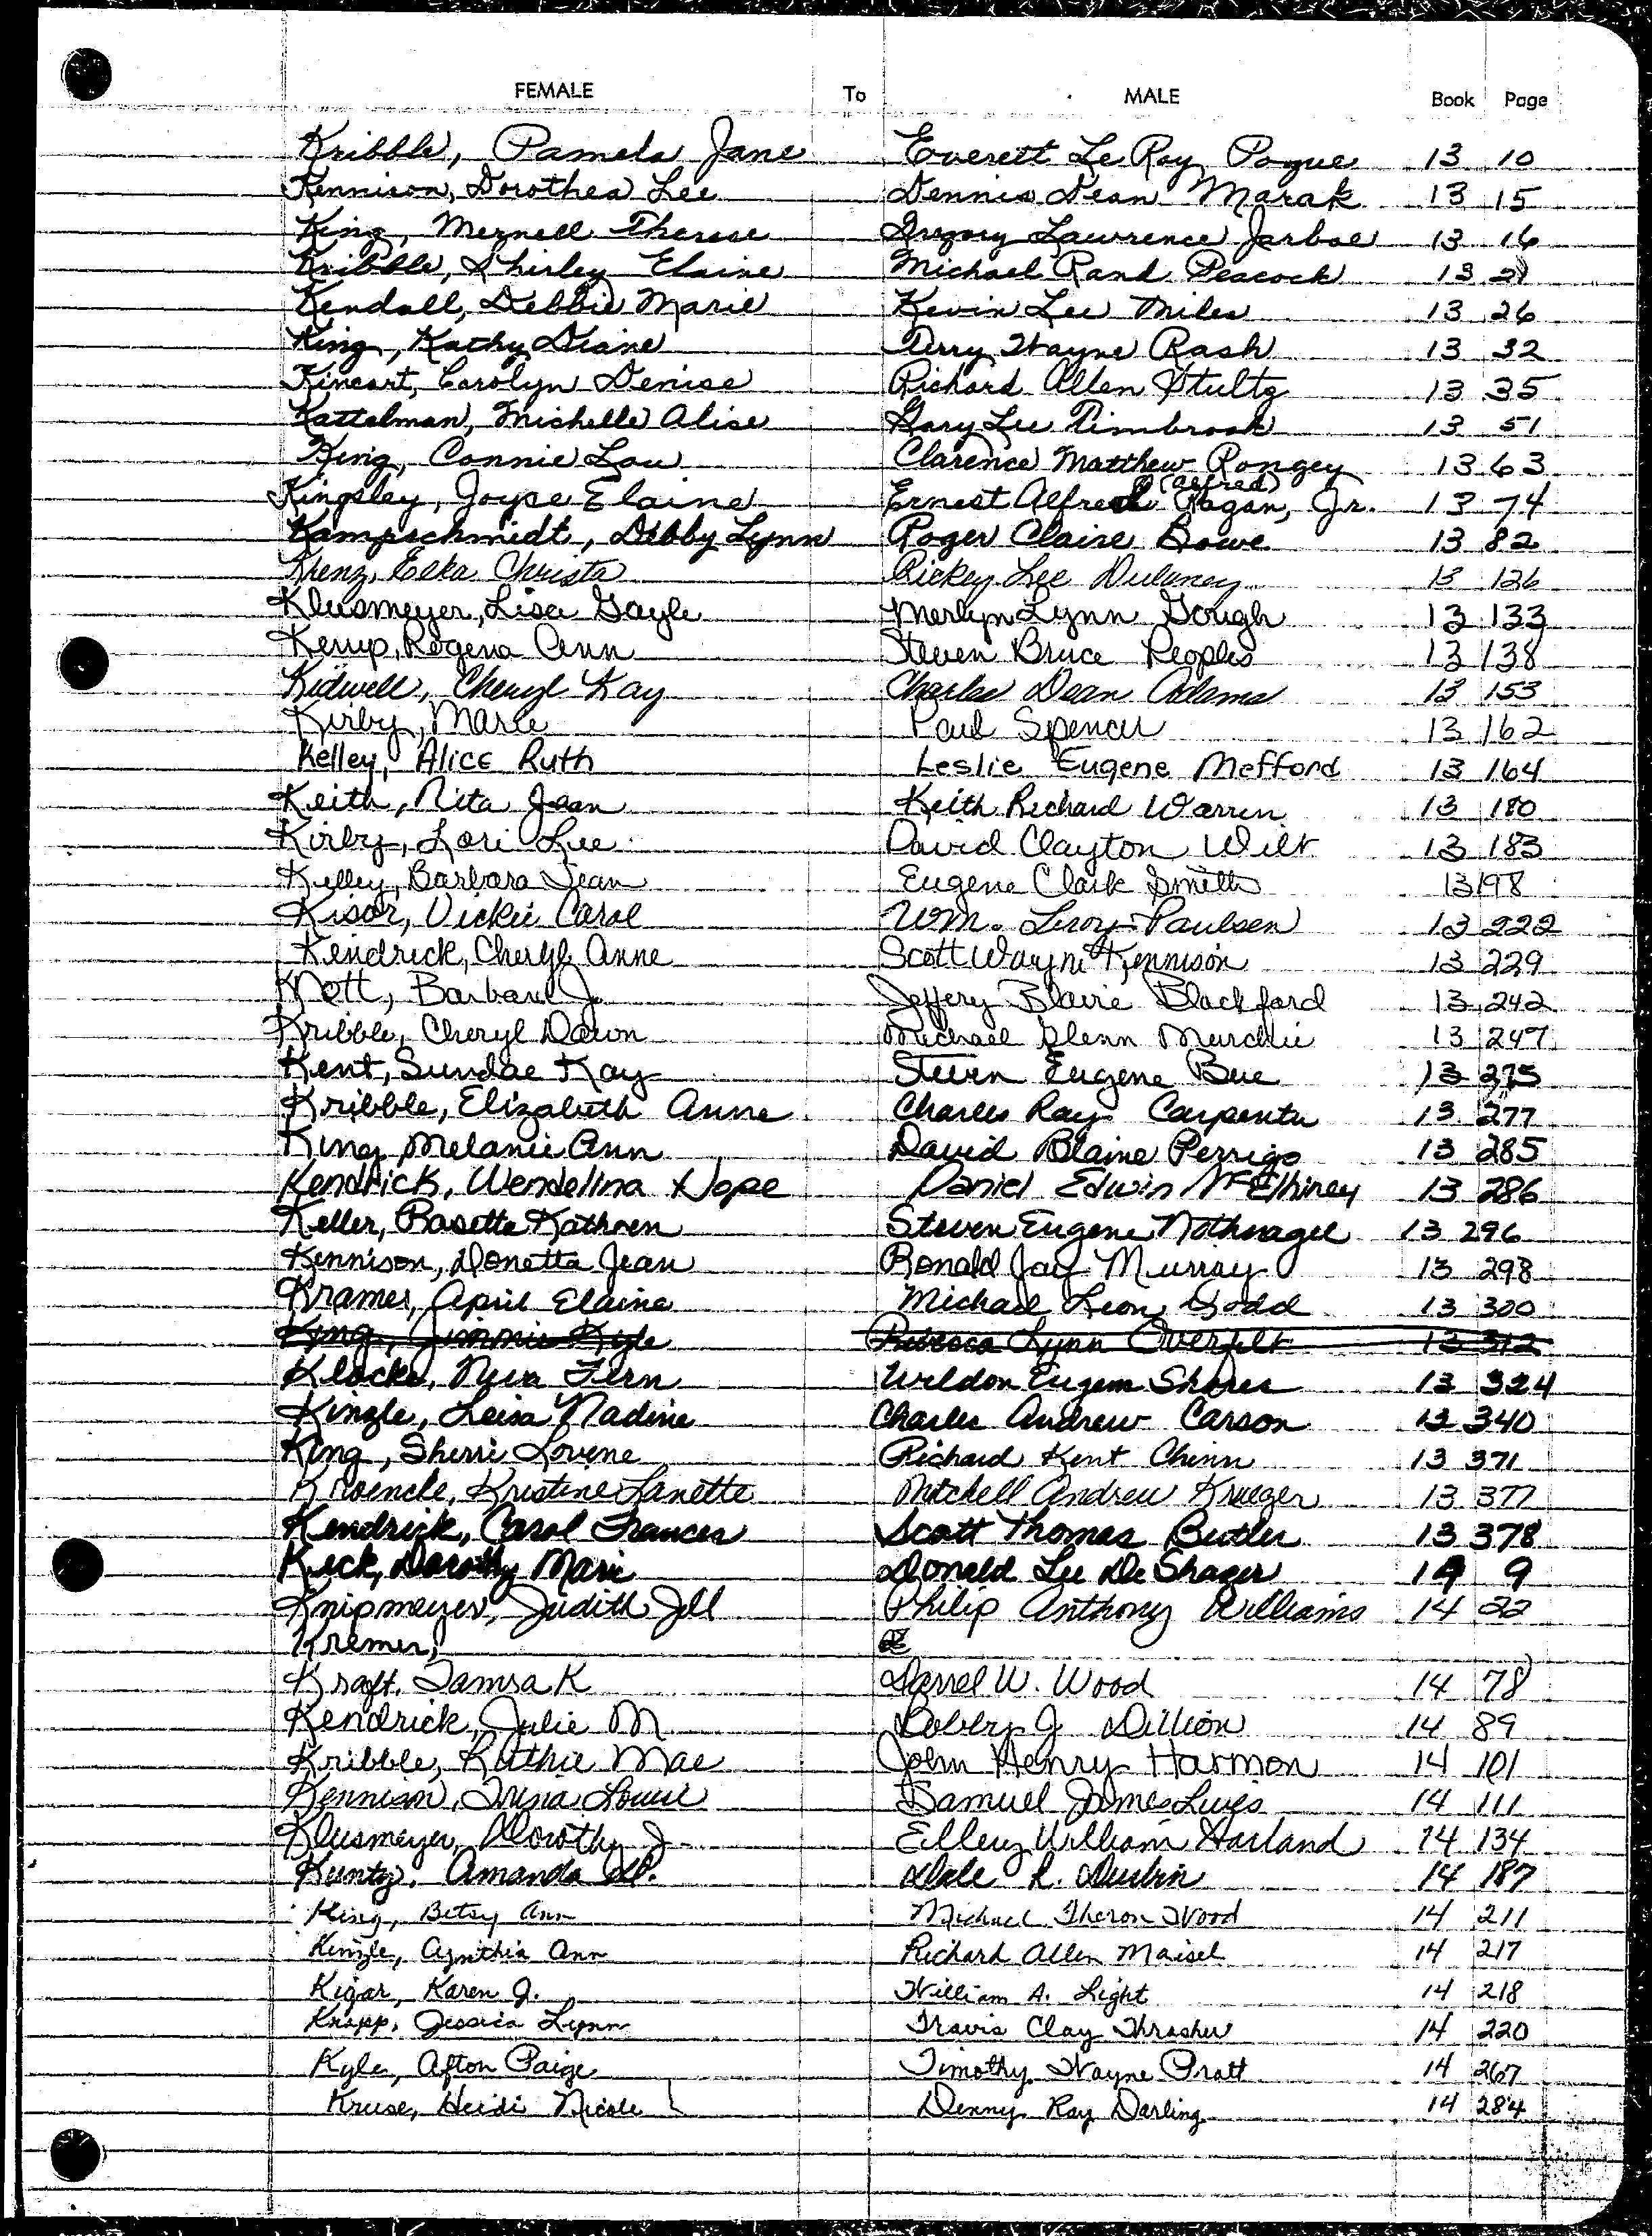 FEMALE To MALE Book Page
Kribble, Pamela Jane Everett Le Roy Pogue 13 10
Kennison, Dorothea Lee Dennis Dean Marak 13 15
King, Mernell Therese Gregory Lawrence Jarboe 13 16
Kribble, Shirley Elaine Michael Rand Peacock 13 21
Kendall, Debbie Marie Kevin Lee Miles 13 26
King, Kathy Diane Terry Wayne Rash 13 32
Kincart, Carolyn Denise Richard Allen Stultz 13 35
Kattelman, Mishelle Alise Gary Lee Timbrook 13 51
King, Connie Lou Clarence Matthew Rongey 13 63
Kingsley, Joyce Elaine Ernest Alfred (alfred) Hagan, Jr. 13 74
Kampschmidt, Debby Lynn Roger Claire Bowe 13 82
Krenz, Elka Christa Rickey Lee Dulaney 13 126
Klusmeyer, Lisa Gayle Merlyn Lynn Gough 13 133
Kerup, Rogena Ann Steven Bruce Peoples 13 138
Kidwell, Cheryl Kay Charles Dean Adams 13 153
Kirby, Marie Paul Spencer 13 162
Kelley, Alice Ruth Leslie Eugene Mefford 13 164
Keith, Nita Jean Keith Richard Warren 13 180
Kirby, Lori Lee David Clayton Wilt 13 183
Kelley, Barbara Jean Eugene Clark Smith 13 198
Kisor, Vickie Carol Wm. Leroy Paulsen 13 222
Kendrick, Cheryl Anne Scott Wayne Kennison 13 229
Knott, Barbara J. Jeffery Blaire Blackford 13 242
Kribble, Cheryl Dawn Michael Glenn Murchie 13 247
Kent, Sundae Kay Steven Eugene Bue 13 275
Kribble, Elizabeth Anne Charles Ray Carpenter 13 277
King, Melanie Ann David Blaine Perrigo 13 285
Kendrick, Wendelina Hope Daniel Edwin McElhiney 13 286
Keller, Rosetta Kathleen Steven Eugene Nothnagel 13 296
Kennison, Donetta Jean Ronald Jay Murray 13 298
Kramer, April Elaine Michael Leon Dodd 13 300
King, Jimmie Kyle Rebecca Lynn Overfelt 13 312
Klocke, Neva Fern Weldon Eugene Shores 13 324
Kinzle, Leisa Nadine Charles Andrew Carson 13 340
King, Sherri Lovene Richard Kent Chinn 13 371
Kroencke, Kristine Lanette Mitchell Andrew Krueger 13 377
Kendrick, Carol Frances Scott Thomas Butler 13 378
Keck, Dorothy Marie Donald Lee De Shager 14 9
Knipmeyer, Judith Jill Philip Anthony Williams 14 22
Kremer,
Kraft, Tamra K Darrel W. Wood 14 78
Kendrick, Julie M Bobby J Dillion 14 89
Kribble, Ruthie Mae John Henry Harmon 14 101
Kennison, Trina Louise Samuel James Luies 14 111
Klusmeyer, Dorothy J Ellery William Harland 14 134
Kuntz, Amanda D. Dale R. Durbin 14 187
King, Betsy Ann Michael Theron Wood 14 211
Kinzle, Cynthia Ann Richard Allen Maisel 14 217
Kigar, Karen J. William A. Light 14 218
Knapp, Jessica Lynn Travis Clay Thrasher 14 220
Kyle, Afton Paige Timothy Wayne Pratt 14 267
Kruse, Heidi Nicole Denny Ray Darling 14 284